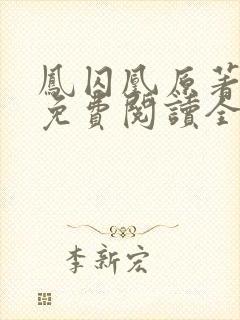 鳳囚凰原著
免費閱讀全
李新宏